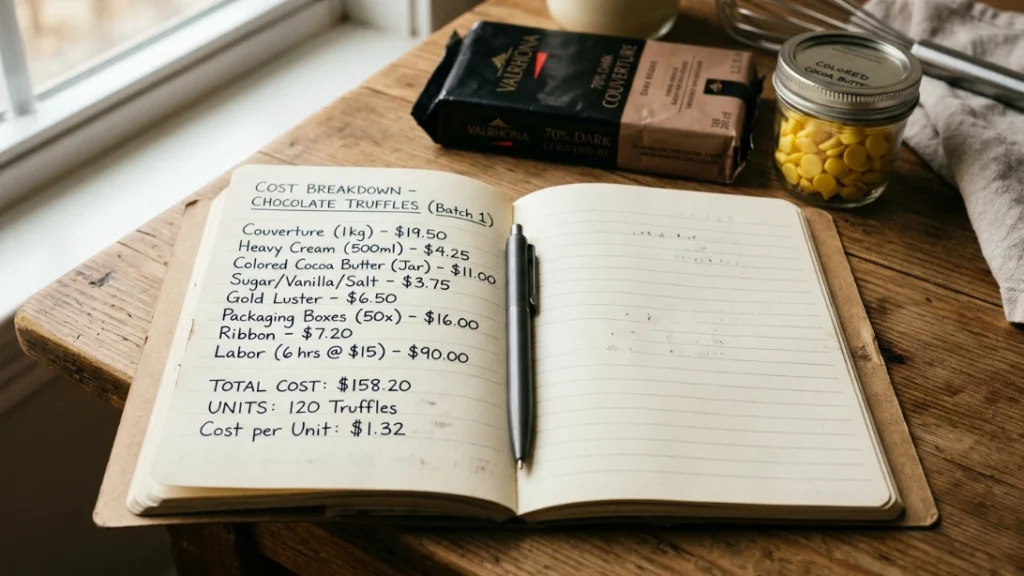 COST BREAKDOWN –
CHOCOLATE TRUFFLES (Batch 1)
Couverture (1kg) – $19.50
Heavy Cream (500ml) – $4.25
Colored Cocoa Butter (Jar) – $11.00
Sugar/Vanilla/Salt – $3.75
Gold Luster – $6.50
Packaging Boxes (50x) – $16.00
Ribbon – $7.20
Labor (6 hrs @ $15) – $90.00
TOTAL COST: $158.20
UNITS: 120 Truffles
Cost per Unit: $1.32
VALRHONA
70% DARK
COUVERTURE
VALRHONA
70% DARK
COUVERTURE
COLORED
COCOA BUTTER